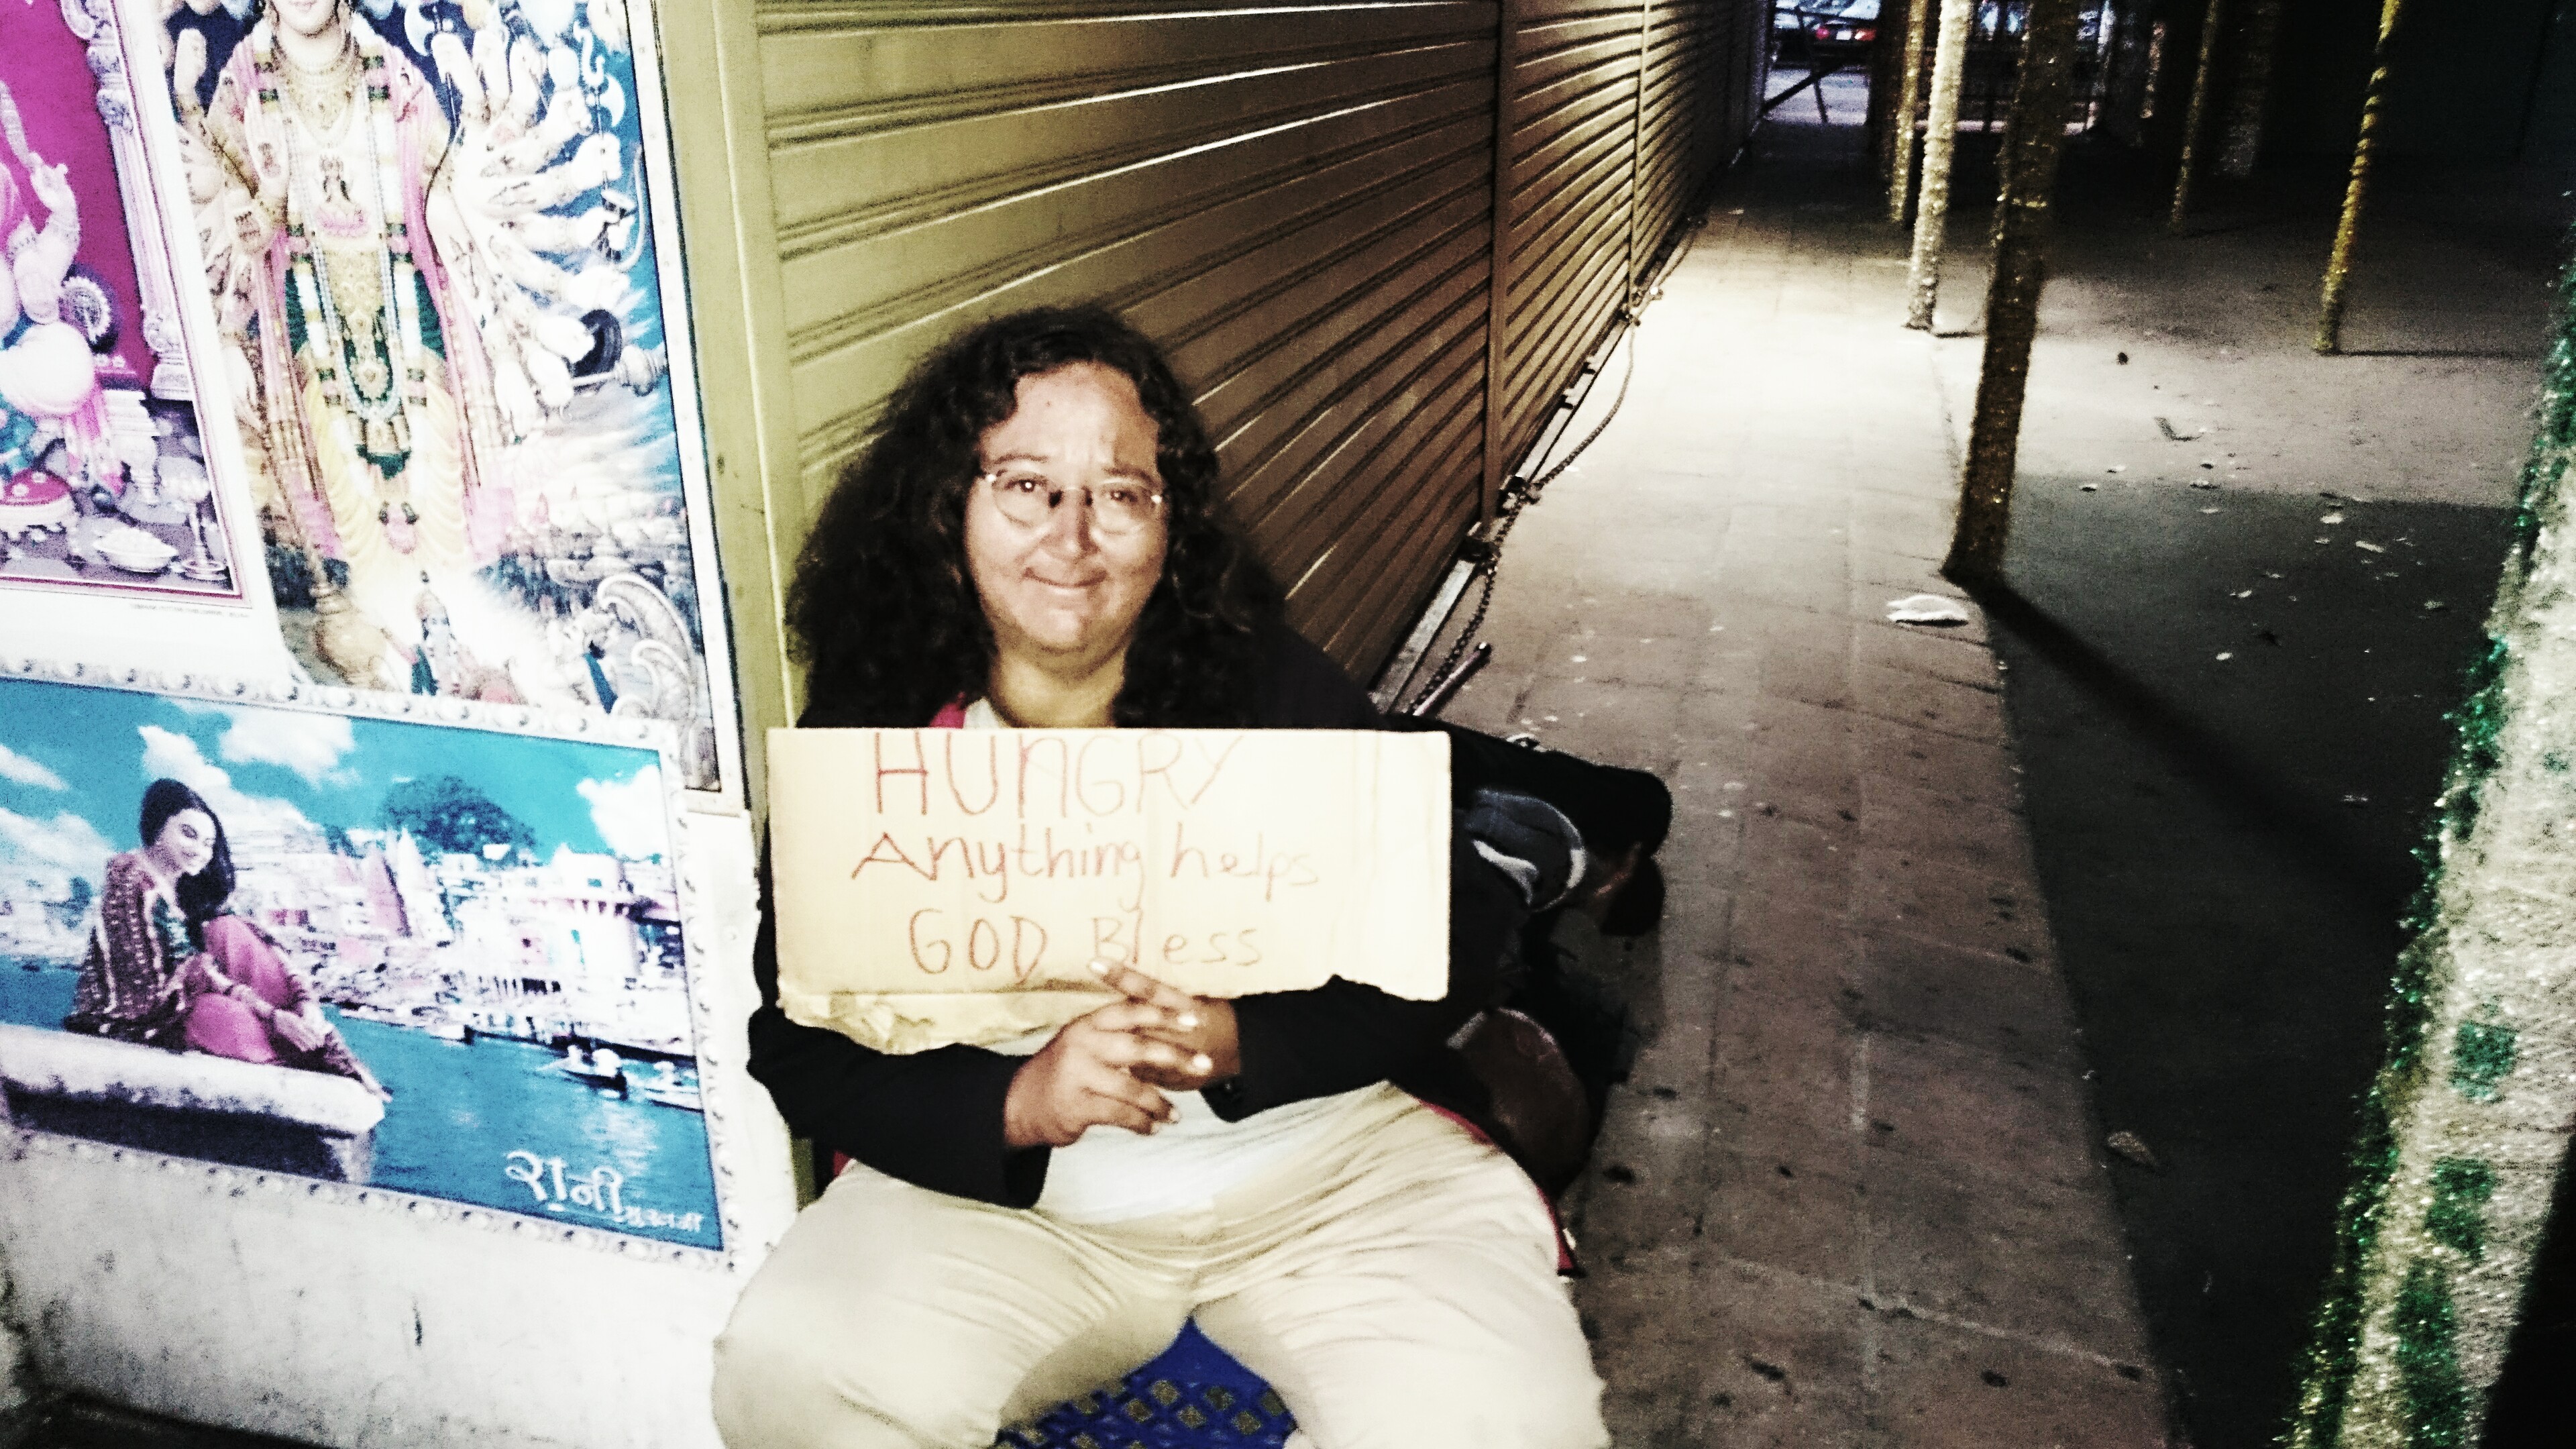 HUNGRY
Anything helps
GOD Bless
रानी
मुखर्जी